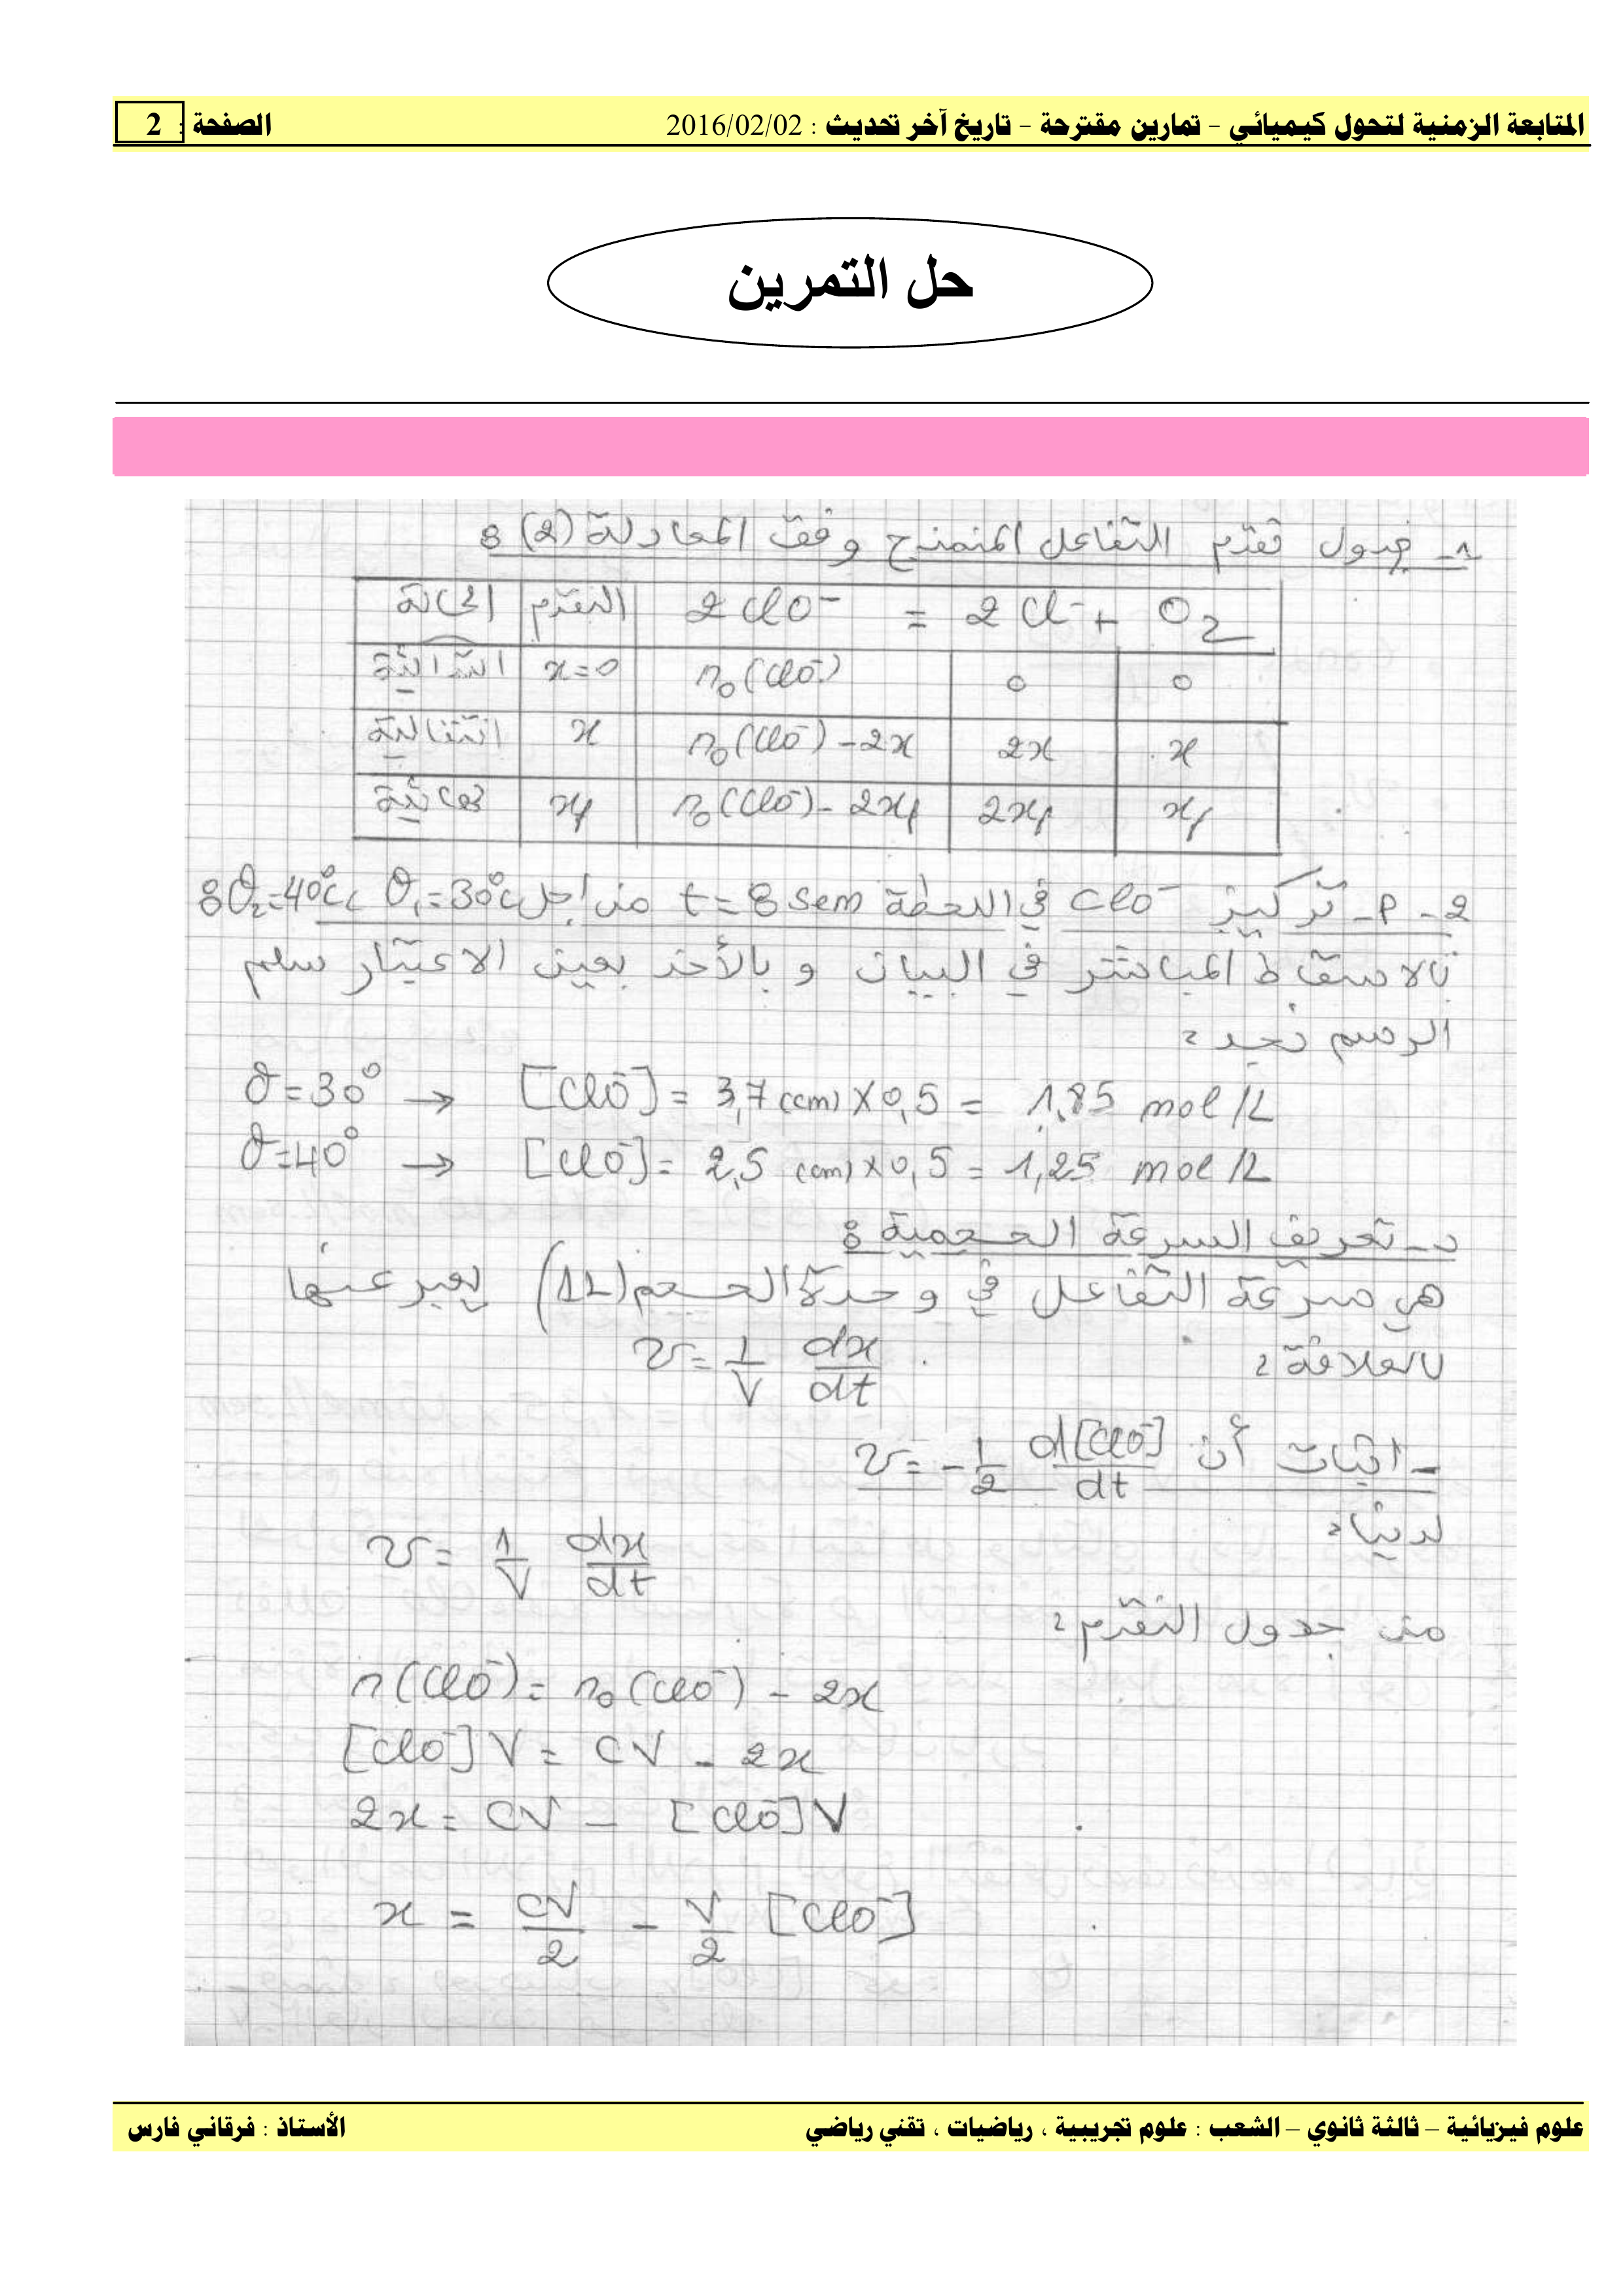 المتابعة الزمنية لتحول كيميائي – تمارين مقترحة – تاريخ آخر تحديث : 2016/02/02 الصفحة : 2
حل التمرين
1- جدول تقدم التفاعل المنمذج وفق المعادلة (2) :
الحالة التقدم 2 ClO⁻ = 2 Cl⁻ + O₂
ابتدائية x=0 n₀(ClO⁻) 0 0
انتقالية x n₀(ClO⁻) - 2x 2x x
نهائية xf n₀(ClO⁻) - 2xf 2xf xf
2- أ- تركيز ClO⁻ في اللحظة t = 8 sem من أجل θ₁=30°C ، θ₂=40°C :
بالاسقاط المباشر في البيان و بالأخذ بعين الاعتبار سلم
الرسم نجد :
θ=30° → [ClO⁻] = 3,7 (cm) × 0,5 = 1,85 mol/L
θ=40° → [ClO⁻] = 2,5 (cm) × 0,5 = 1,25 mol/L
د- تعريف السرعة الحجمية :
هي سرعة التفاعل في وحدة الحجم (1L) يعبر عنها
بالعلاقة : v = 1/V dx/dt
- اثبات أن v = - 1/2 d[ClO⁻]/dt
لدينا :
v = 1/V dx/dt
من جدول التقدم :
n(ClO⁻) = n₀(ClO⁻) - 2x
[ClO⁻] V = CV - 2x
2x = CV - [ClO⁻] V
x = CV/2 - V/2 [ClO⁻]
علوم فيزيائية – ثالثة ثانوي – الشعب : علوم تجريبية ، رياضيات ، تقني رياضي الأستاذ : فرقاني فارس